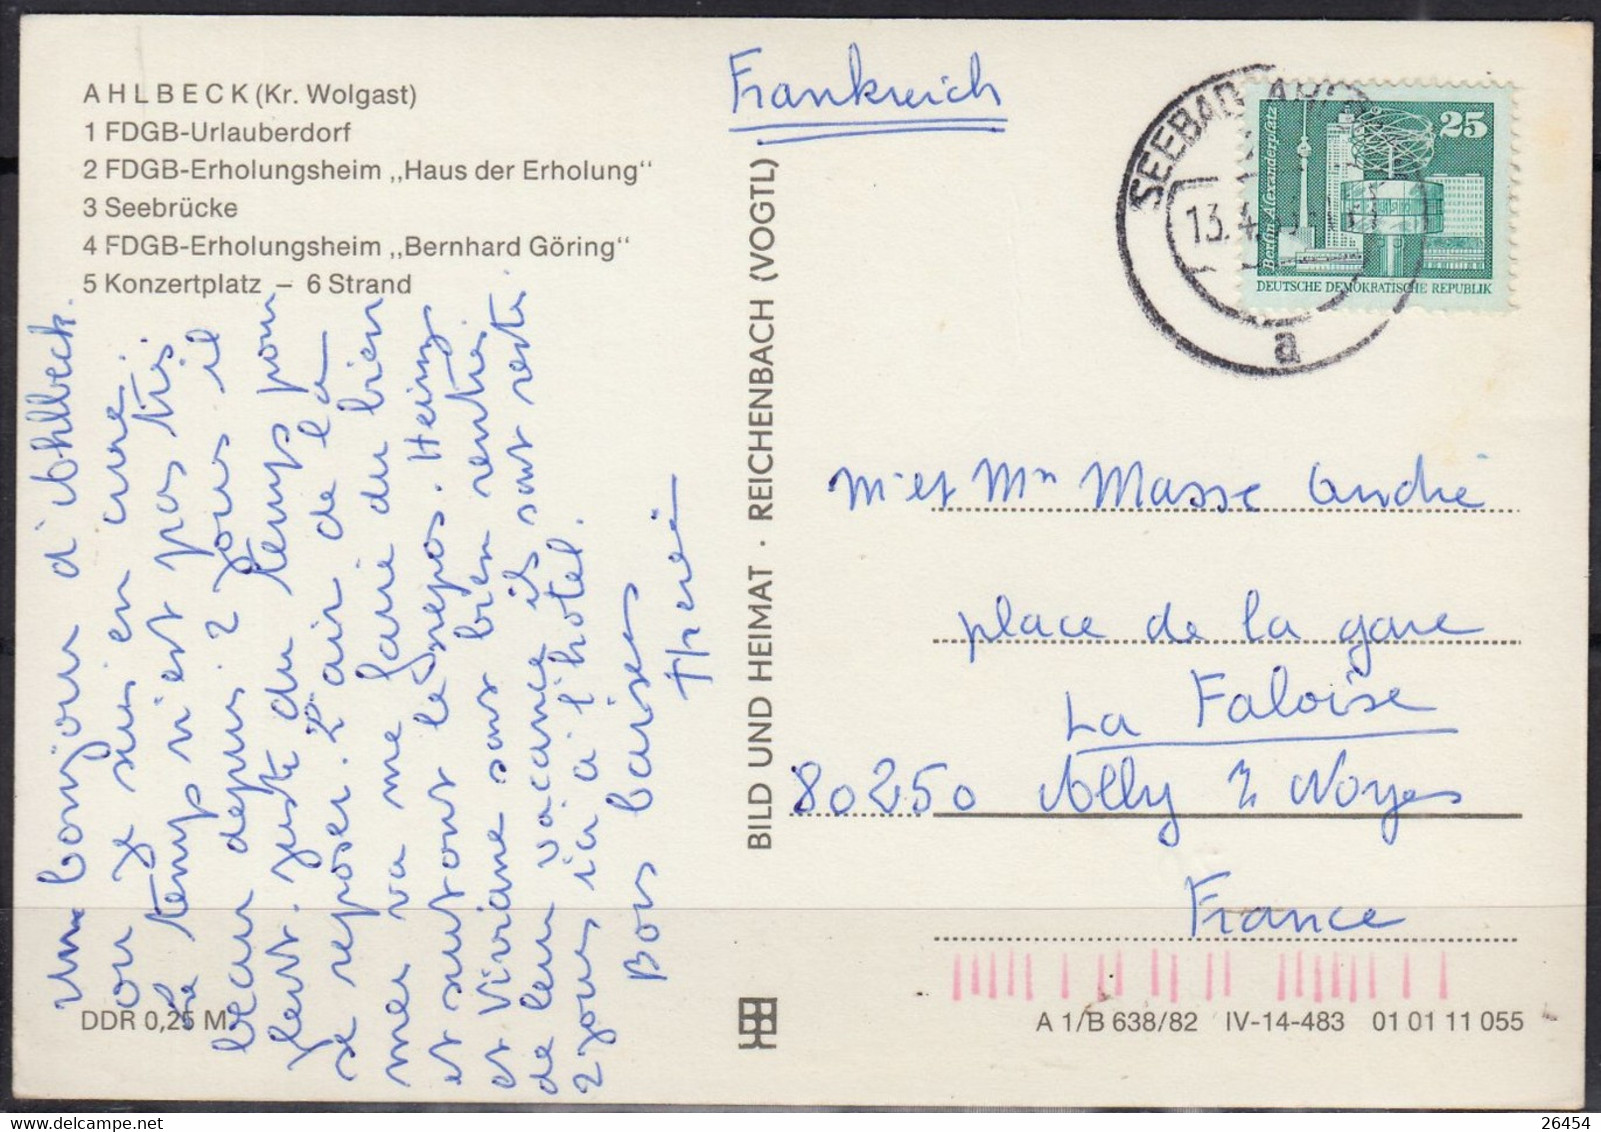 AHLBECK (Kr. Wolgast)
1 FDGB-Urlauberdorf
2 FDGB-Erholungsheim „Haus der Erholung“
3 Seebrücke
4 FDGB-Erholungsheim „Bernhard Göring“
5 Konzertplatz – 6 Strand
Un bonjour d'Ahlbeck.
ou je suis en cure.
Le temps n'est pas très
beau depuis 2 jours il
pleut. juste du temps pour
se reposer. L'air de la
mer va me faire du bien
et surtout le repos. Heinz
et Viviane sont bien rentrés
de leur vacance ils sont resté
2 jours ici à l'hotel.
Bons baisers
DDR 0,25 M
BILD UND HEIMAT · REICHENBACH (VOGTL)
Frankreich
SEEBAD
13.4.
a
25
Berlin-Alexanderplatz
DEUTSCHE DEMOKRATISCHE REPUBLIK
Mr et Mm Masse André
place de la gare
La Faloise
80250 Ailly s Noyes
France
A 1/B 638/82 IV-14-483 01 01 11 055
26454